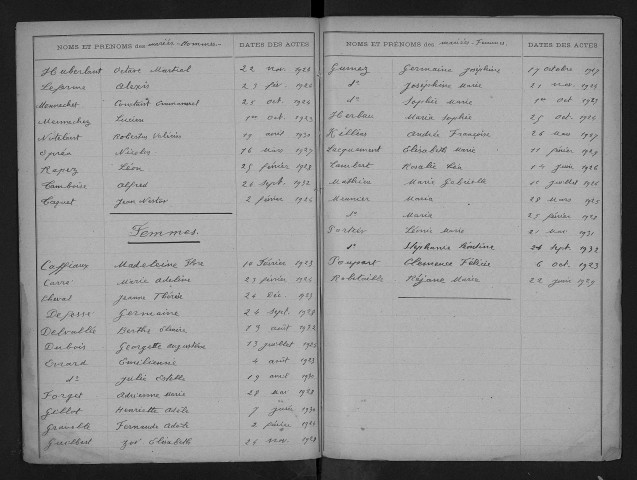 NOMS ET PRÉNOMS des mariés - Hommes. DATES DES ACTES
Huberlant Octave Martial 22 nov. 1928
Leferme Alexis 23 fév. 1926
Mennechet Constant Emmanuel 25 oct. 1926
Mennechez Lucien 1er oct. 1923
Robertus 19 avril 1930
Opréa Nicolas 26 mars 1927
Rapez Léon 25 février 1928
Tamboise Alfred 20 sept. 1932
Taquet Jean Nestor 2 février 1926
Femmes.
Caffiaux Madeleine 10 Février 1923
Carré Marie Adeline 23 février 1926
Cheval Jeanne Thérèse 24 Déc. 1923
Defossé Germaine 24 sept. 1928
Delvallée Berthe Elmire 13 août 1932
Dubois Georgette Augustine 13 juillet 1926
Evrard Emilienne 4 août 1923
d° Julie Estelle 19 avril 1930
Forget Adrienne Marie 28 mai 1928
Gellot Henriette Adèle 7 juin 1930
Fernande Adèle 2 février
Guilbert Zoé Elisabeth 24 nov. 1928
NOMS ET PRÉNOMS des mariés - Femmes. DATES DES ACTES
Gumez Germaine Joséphine 17 octobre
d° Joséphine Marie 21 nov.
d° Sophie Marie 1er oct 1923
Herbau Marie Sophie 25 oct. 1926
Andrée Françoise 26 mars 1927
Jacquement Elisabeth Marie 11 février
Lambert Rosalie Léa 14 juin 1926
Mathieu Marie Gabrielle 11 juillet 1926
Meunier Maria 28 mars 1925
d° Maria 25 février 1928
Portier Léonie Marie 21 mai 1931
d° Stéphanie Léontine 24 sept. 1932
Poupart Clémence Félicie 6 oct. 1923
Robitaille Réjane Maria 22 juin 1929